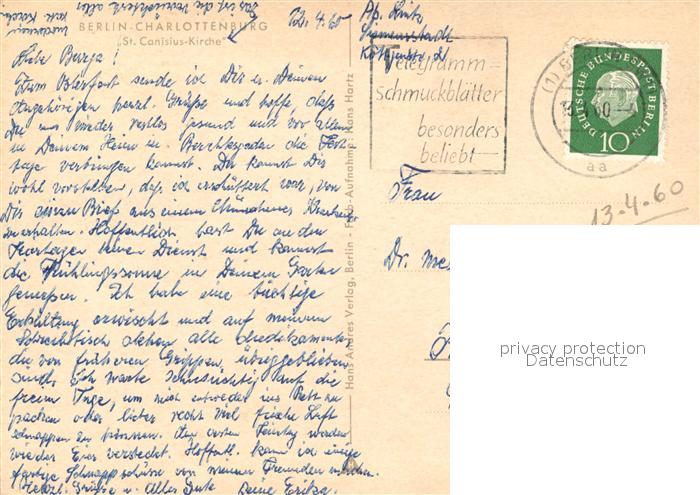 BERLIN-CHARLOTTENBURG
"St. Canisius-Kirche"
Bln. 4.60
Liebe Berga!
Zum Osterfest sende ich Dir u. Deinen
Angehörigen herzl. Grüße und hoffe, daß
Du nun wieder restlos gesund und vor allem
in Deinem Heim in Berchtesgaden die Fest
tage verbringen kannst. Du kannst Dir
wohl vorstellen, daß ich erschüttert war, von
Dir einen Brief aus einem Münchener Krankenhaus
zu erhalten. Hoffentlich hast Du an den
Ostertagen keinen Dienst und kannst
die Frühlingssonne in Deinem Garten
geniessen. Ich habe eine tüchtige
Erkältung erwischt und auf meinem
Schreibtisch stehen alle Medikamente
die von früheren Grippen übriggeblieben
sind. Ich warte sehnsüchtig auf die
freien Tage, um mich entweder ins Bett zu
packen oder lieber recht viel frische Luft
schnappen zu können. Am ersten Feiertag werden
wieder Eier versteckt. Hoffentl. kann ich einige
farbige Schnappschüsse von meinen Freunden machen.
Herzl. Grüße u. Alles Gute Deine Erika.
Hans Andres Verlag, Berlin - Farb-Aufnahme: Hans Hartz
Siemensstadt
Telegramm=
schmuckblätter
besonders
beliebt
(1) BERLIN
60
aa
DEUTSCHE BUNDESPOST BERLIN
10
13-4-60
Frau
Dr. med
privacy protection
Datenschutz